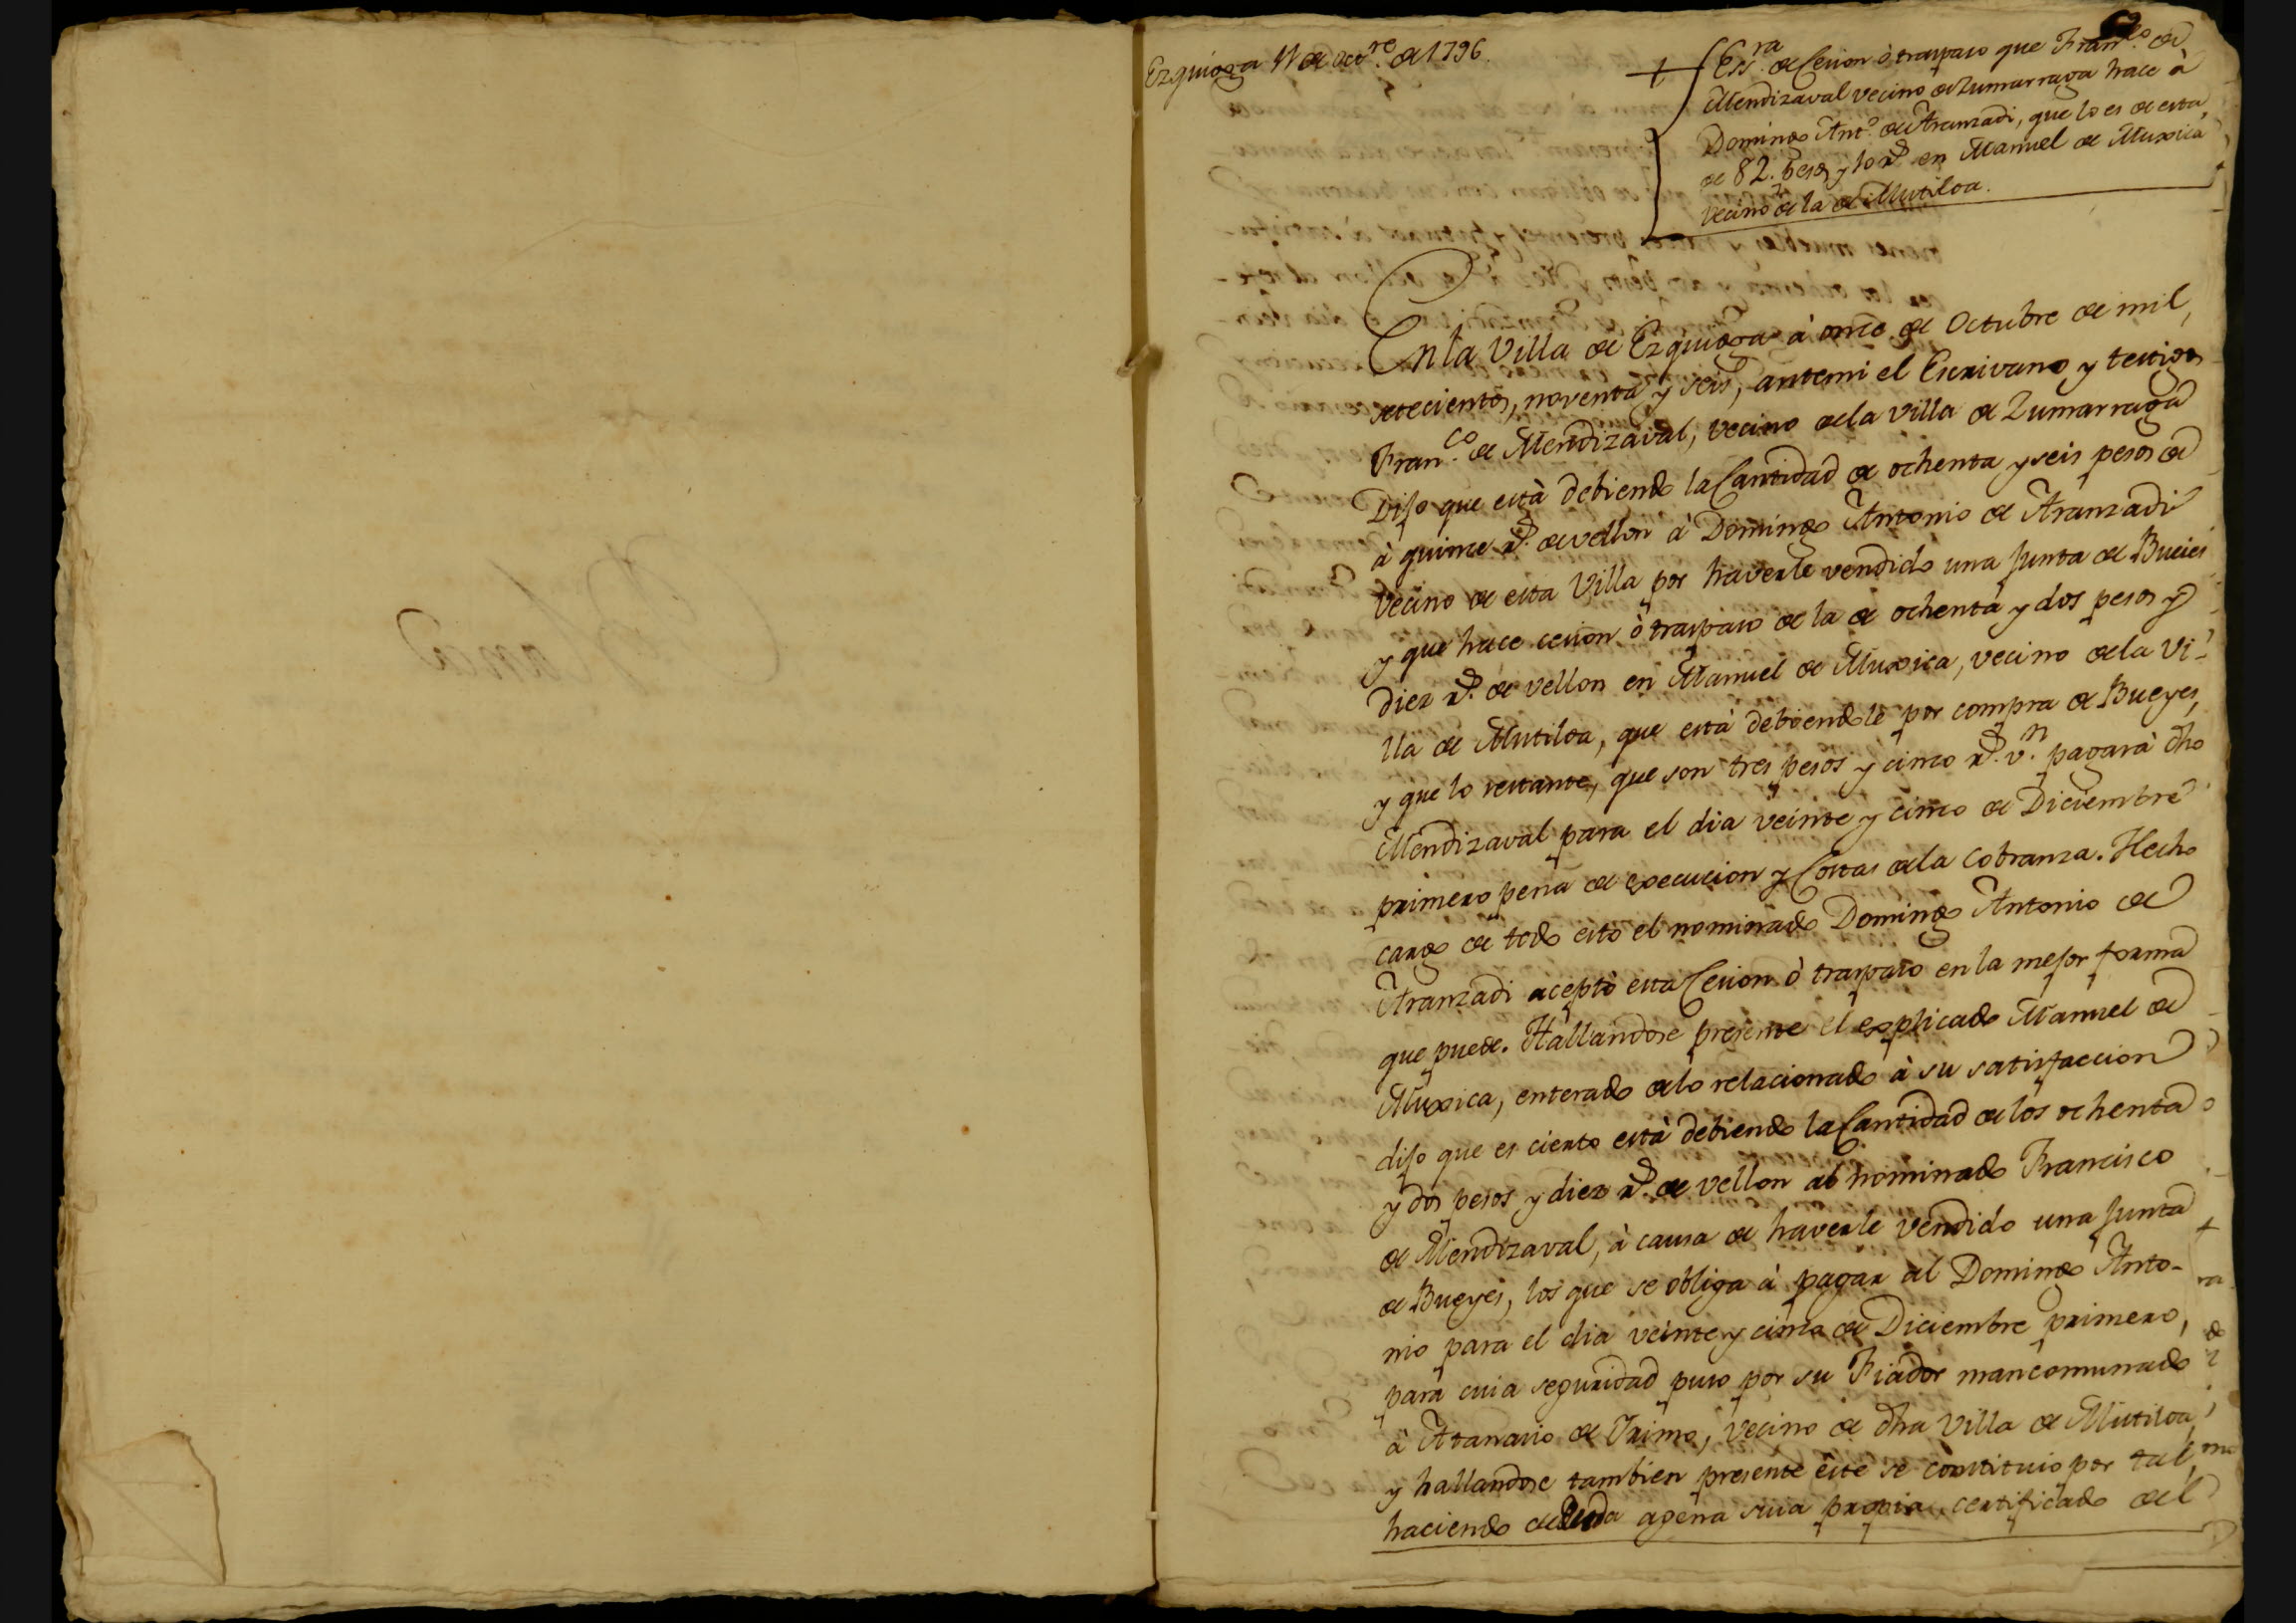 Ezquioga 11 de Oct.re de 1796.
Ess.ra de Cesion ò traspaso que Fran.co de
Mendizaval vecino de Zumarraga hace à
Domingo Ant.o de Aranzadi, que lo es de esta,
de 82. pesos y 10 r.s en Manuel de Muxica
vecino de la de Mutiloa.
En la Villa de Ezquioga à once de Octubre de mil,
setecientos, noventa y seis, antemi el Escrivano y testigos
Fran.co de Mendizaval, vecino dela villa de Zumarraga
Dijo que està debiendo la Cantidad de ochenta y seis pesos de
à quince r.s de vellon à Domingo Antonio de Aranzadi
vecino de esta Villa por haverle vendido una Junta de Bueies
y que hace cesion ò traspaso de la de ochenta y dos pesos y
diez r.s de vellon en Manuel de Muxica, vecino dela Vi-
lla de Mutiloa, que està debiendole por compra de Bueyes,
y que lo restante, que son tres pesos y cinco r.s v.n pagarà dho
Mendizaval para el dia veinte y cinco de Diciembre
primero pena de execucion y Costas dela cobranza. Hecho
cargo de todo esto el nominado Domingo Antonio de
Aranzadi aceptò esta Cesion ò traspaso en la mejor forma
que puede. Hallandose presente el explicado Manuel de
Muxica, enterado delo relacionado à su satisfaccion
dijo que es cierto està debiendo la Cantidad de los ochenta
y dos pesos y diez r.s de vellon al nominado Francisco
de Mendizaval, à causa de haverle vendido una Junta
de Bueyes, los que se obliga à pagar al Domingo Anto-
nio para el dia veinte y cinco de Diciembre primero,
para cuia seguridad puso por su Fiador mancomunado
à Atanasio de Irimo, vecino de dha Villa de Mutiloa,
y hallandose tambien presente este se constituio por tal,
haciendo de Deuda agena suia propia, certificado del